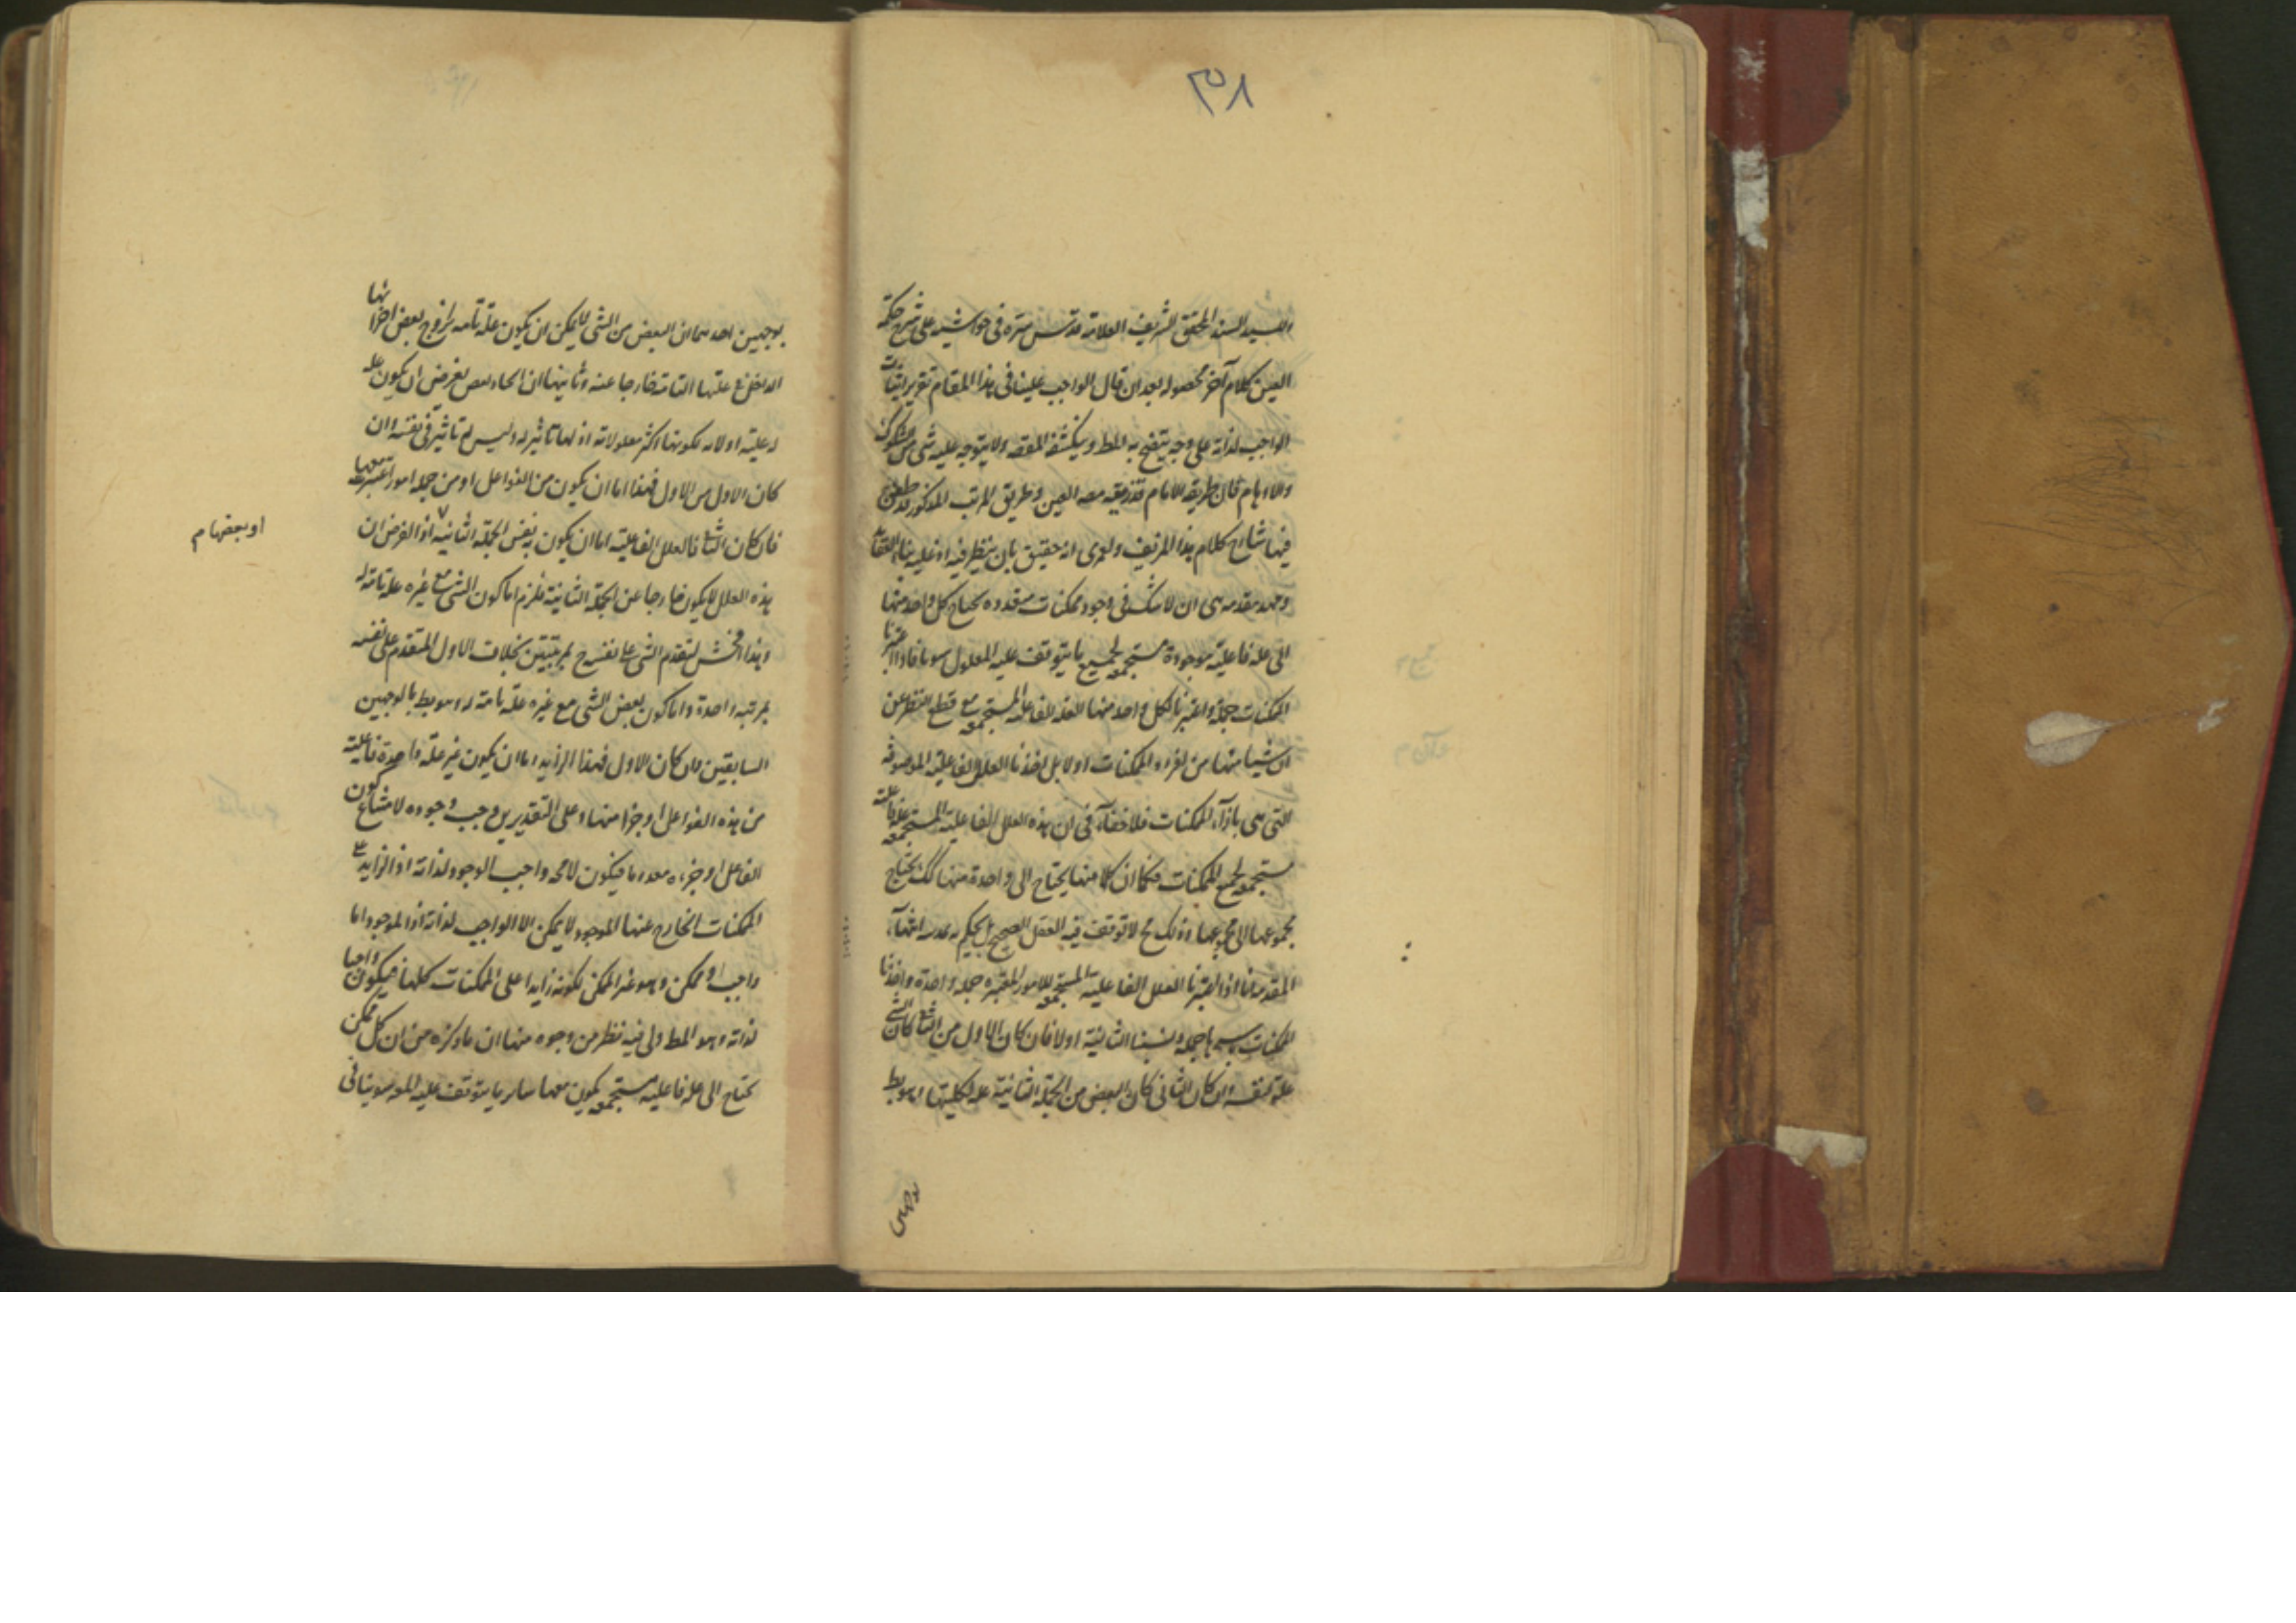 ٣٥٨
السيد السند المحقق الشريف العلامة قدس سره فى حواشيه على شرح حكمة
العين كلام آخر محصوله بعد ان قال الواجب علينا فى هذا المقام تقرير اثبات
الواجب لذاته على وجه يتضح به المط وينكشف المقصد ولا يتوجه عليه شى من الشكوك
والاوهام فان طريقة الامام قد زيفه مص العين وطريق المرتب المذكور قد طعن
فيها شارح كلام هذا المزيف ولعمرى انه حقيق بان ينظر فيه
ومهد مقدمه هى ان لا شك فى وجود ممكنات متعدده يحتاج كل واحد منها
الى علة فاعلية موجودة مستجمعة لجميع ما يتوقف عليه المعلول سوبا فاذا اعتبرنا
الممكنات جملة واعتبرنا لكل واحد منها العلة الفاعلية المستجمعه مع قطع النظر عن
ان شيئا منها من افراد الممكنات او لا بل اخذنا العلل الفاعلية الموصوفة
التى هى بازآء الممكنات فلا خفآء فى ان هذه العلل الفاعلية المستجمعه علة فاعلية
مستجمعه لجميع الممكنات فكما ان كلا منها يحتاج الى واحدة منها كك يحتاج
مجموعها الى مجموعها وذلك مح لا توقف فيه العقل الصحيح بل يحكم به
المقدمة فاذا اعتبرنا العلل الفاعلية المستجمعه للامور المعتبره جملة واحدة واخذنا
الممكنات باسرها جملة ونسبنا الثانية اولا فان كان الاول من الشق كان الشى
علة لنفسه وان كان الثانى كان البعض من الجملة الثانية علة لكليتها وهو بط
بوجهين
بوجهين احدهما ان البعض من الشى لا يمكن ان يكون علة تامه لخروج بعض اجزائها
الداخل فى علتها التامة خارجا عنه وثانيهما ان بعض يفرض ان يكون علة
له عليته اولا لكونها اكثر معلولاته اذ لها تاثير له وليس له تاثير فى نفسه وان
كان الاول من الاول فهذا اما ان يكون من الفواعل او من جملة امور اعتبرت معها
فان كان الثانى فالعلل الفاعلية اما ان يكون نفس الجملة الثانيه اذ الفرض ان
او بعضها م
هذه العلل لا يكون خارجا عن الجملة الثانية فلزم اما كون الشى مع غيره علة تامة له
وهذا افحش لتقدم الشى على نفسه ح بمرتبتين بخلاف الاول المتقدم على نفسه
بمرتبه واحدة واما كون بعض الشى مع غيره علة تامة له وهو بط بالوجهين
السابقين وان كان الاول فهذا الزايد اما ان يكون غير علة واحدة فاعلية
من هذه الفواعل او جزا منها وعلى التقديرين وجب وجوده لامتناع كون
الفاعل او جزءه معدوما فيكون لامحه واجب الوجود لذاته اذ الزايد على
الممكنات الخارج عنها الموجود لا يمكن الا الواجب لذاته اذ الموجود اما
واجب او ممكن وهو غير الممكن لكونه زايدا على الممكنات كلها فيكون واجبا
لذاته وهو المط ولى فيه نظر من وجوه منها ان ما ذكره من ان كل ممكن
يحتاج الى علة فاعلية مستجمعه يكون معها ساير ما يتوقف عليه المعلول